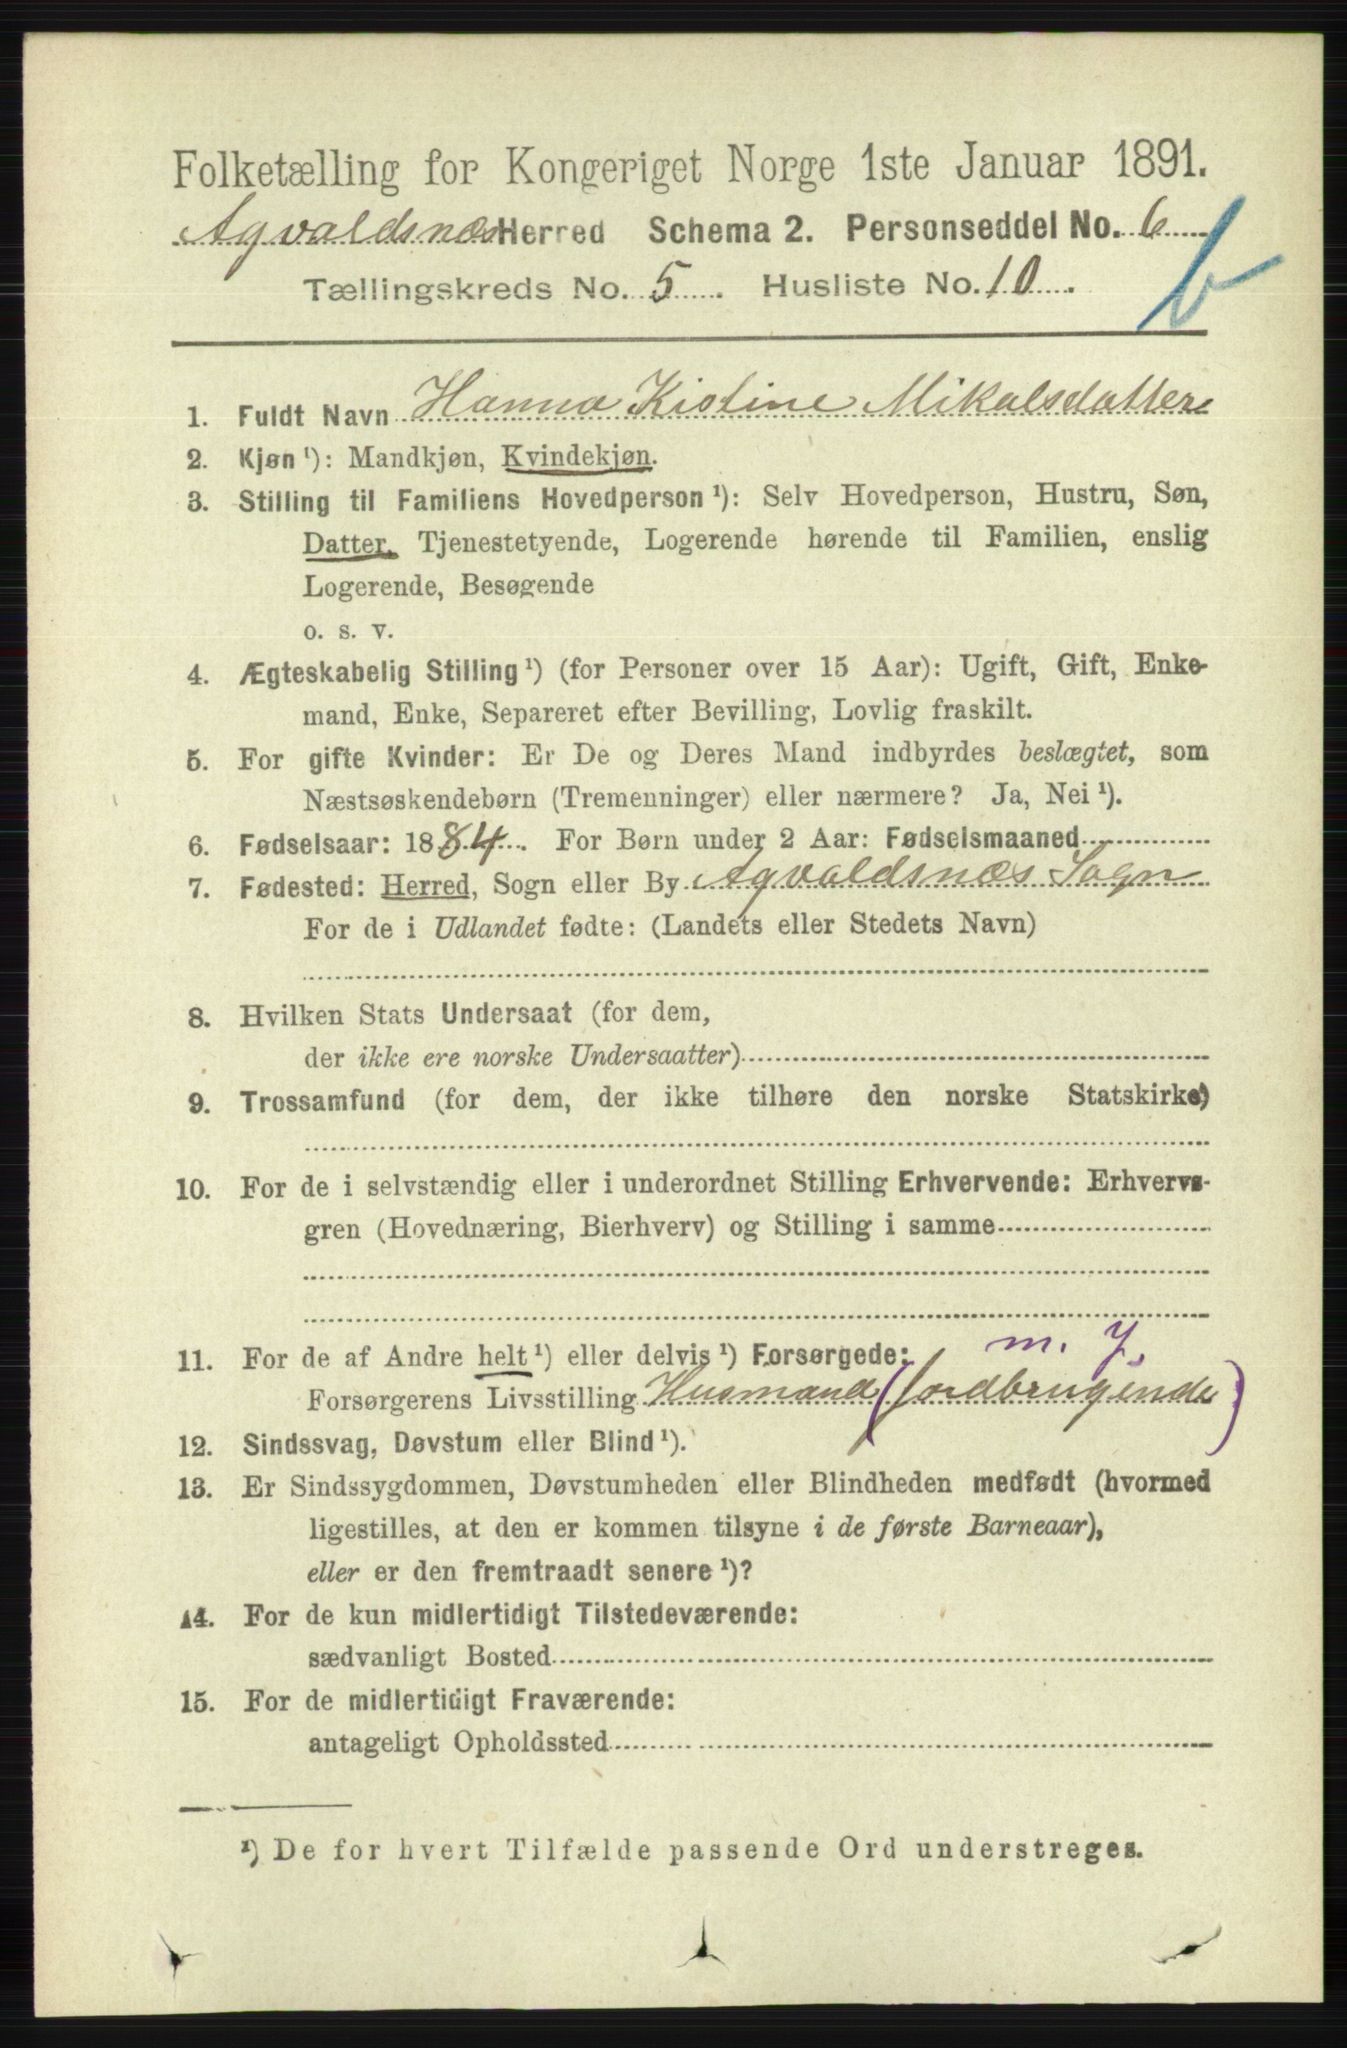 Folketælling for Kongeriget Norge 1ste Januar 1891.
Agvaldsnæs Herred Schema 2. Personseddel No. 6
b
Tællingskreds No. 5. Husliste No. 10.
1. Fuldt Navn Hanna Kistine Mikalsdatter
2. Kjøn ¹): Mandkjøn, Kvindekjøn.
3. Stilling til Familiens Hovedperson ¹): Selv Hovedperson, Hustru, Søn,
Datter, Tjenestetyende, Logerende hørende til Familien, enslig
Logerende, Besøgende
o. s. v.
4. Ægteskabelig Stilling ¹) (for Personer over 15 Aar): Ugift, Gift, Enke-
mand, Enke, Separeret efter Bevilling, Lovlig fraskilt.
5. For gifte Kvinder: Er De og Deres Mand indbyrdes beslægtet, som
Næstsøskendebørn (Tremenninger) eller nærmere? Ja, Nei ¹).
6. Fødselsaar: 1884. For Børn under 2 Aar: Fødselsmaaned
7. Fødested: Herred, Sogn eller By Agvaldsnæs Sogn
For de i Udlandet fødte: (Landets eller Stedets Navn)
8. Hvilken Stats Undersaat (for dem,
der ikke ere norske Undersaatter)
9. Trossamfund (for dem, der ikke tilhøre den norske Statskirke)
10. For de i selvstændig eller i underordnet Stilling Erhvervende: Erhvervs-
gren (Hovednæring, Bierhverv) og Stilling i samme
11. For de af Andre helt ¹) eller delvis ¹) Forsørgede: m. j.
Forsørgerens Livsstilling Husmand (jordbrugende)
12. Sindssvag, Døvstum eller Blind ¹).
13. Er Sindssygdommen, Døvstumheden eller Blindheden medfødt (hvormed
ligestilles, at den er kommen tilsyne i de første Barneaar),
eller er den fremtraadt senere ¹)?
14. For de kun midlertidigt Tilstedeværende:
sædvanligt Bosted
15. For de midlertidigt Fraværende:
antageligt Opholdssted
¹) De for hvert Tilfælde passende Ord understreges.